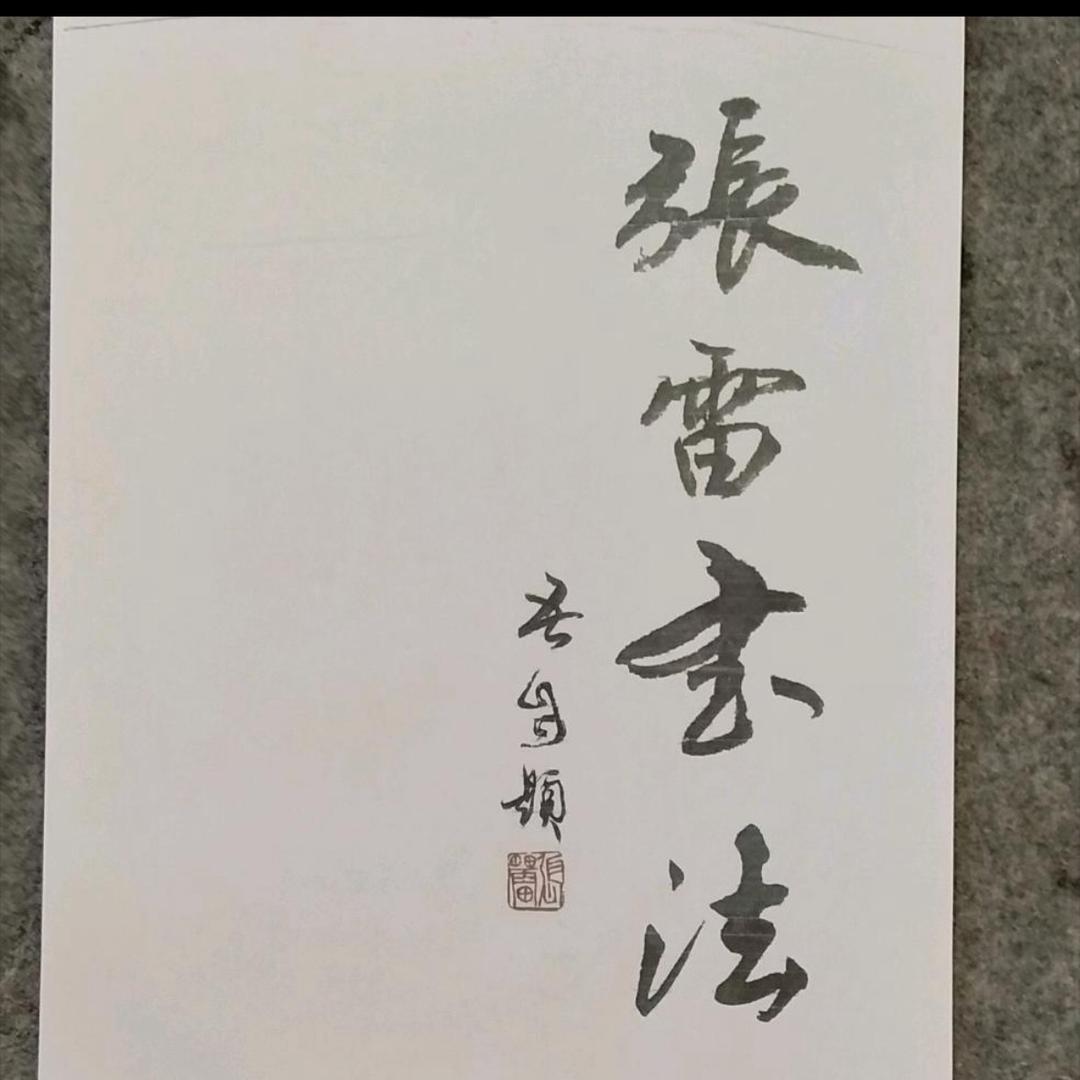 張雷書法
題
張雷